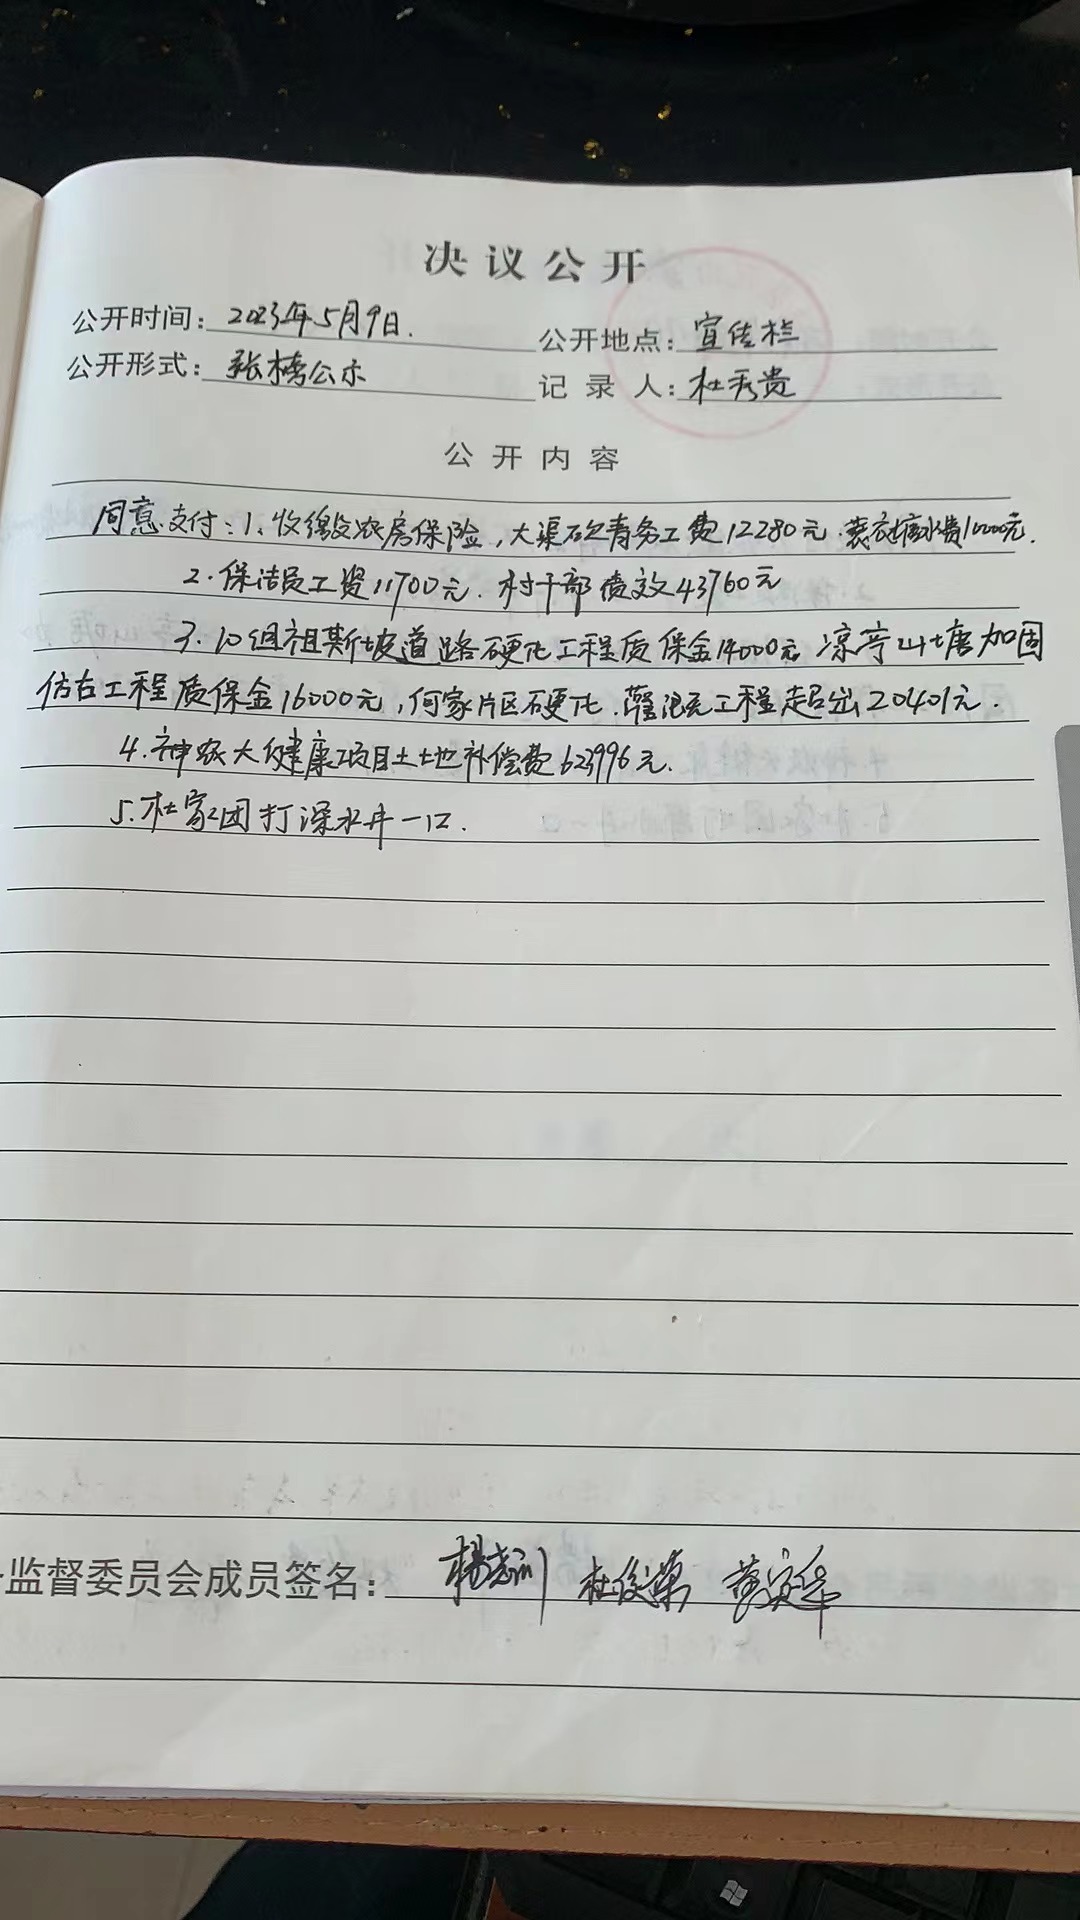 决议公开
公开时间：2023年5月9日.
公开地点：宣传栏
公开形式：张榜公示
记录人：杜秀贵
公开内容
同意支付：1、收缴农房保险，大渠砍青务工费12280元. 水费10000元.
2. 保洁员工资11700元. 村干部绩效43760元
3. 10组祖斯坡道路硬化工程质保金14000元 凉亭山塘加固
仿古工程质保金16000元，何家片区硬化、灌混凝工程超出20401元.
4. 神农大健康项目土地补偿费623996元.
5. 杜家团打深水井一口.
监督委员会成员签名：杜俊荣